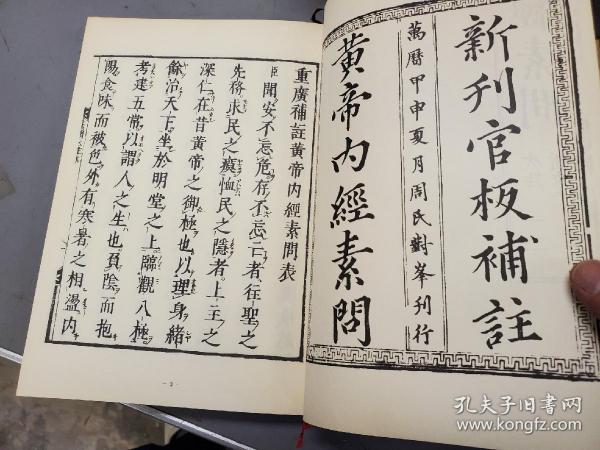 新刊官板補註
萬曆甲申夏月周氏對峯刊行
黃帝內經素問
重廣補註黃帝內經素問表
臣聞安不忘危存不忘亡者往聖之
先務求民之瘼恤民之隱者上主之
深仁在昔黃帝之御極也以理身緒
餘治天下坐於明堂之上臨觀八極
考建五常以謂人之生也負陰而抱
陽食味而被色外有寒暑之相盪內
- 3 -
孔夫子旧书网
www.kongfz.com